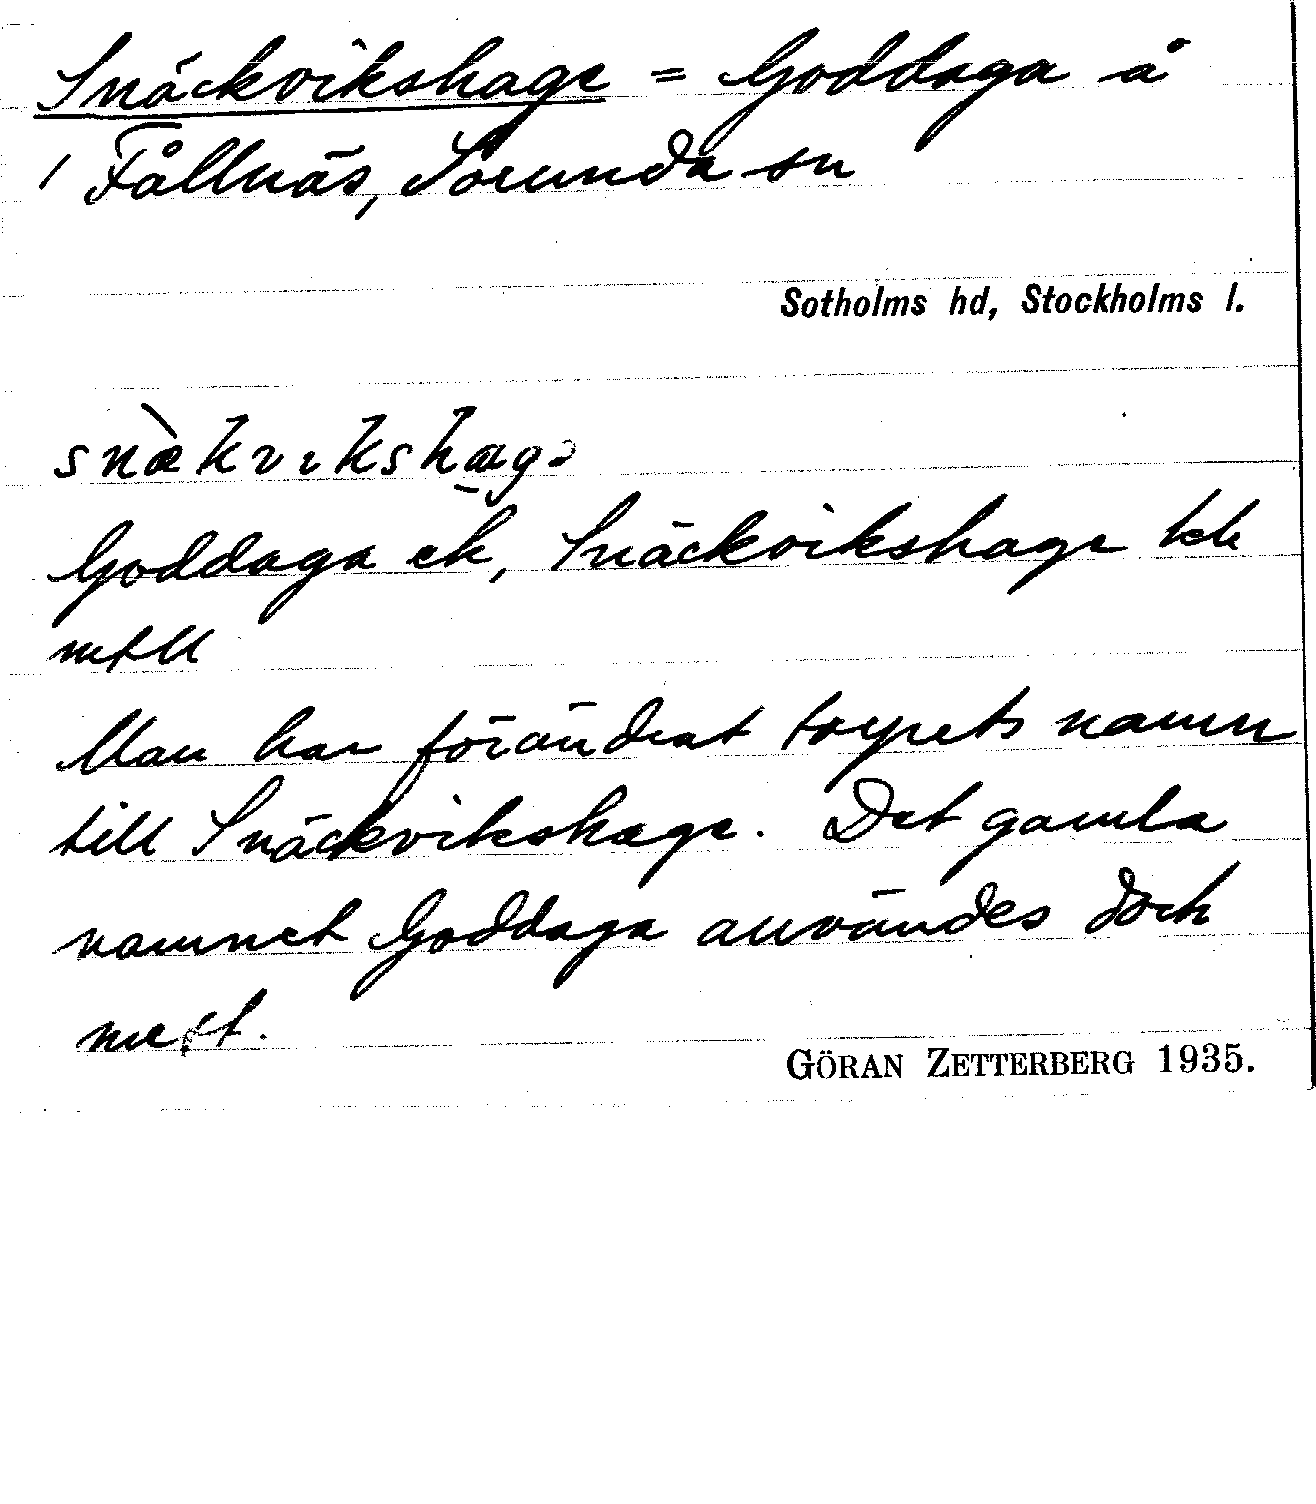 Snäckvikshage = Goddaga å
/ Fållnäs, Sorunda sn
Sotholms hd, Stockholms l.
snækvikshag
Goddaga ek, Snäckvikshage tck
mtll
Man har förändrat torpets namn
till Snäckvikshage. Det gamla
namnet Goddaga användes dock
mest.
GÖRAN ZETTERBERG 1935.